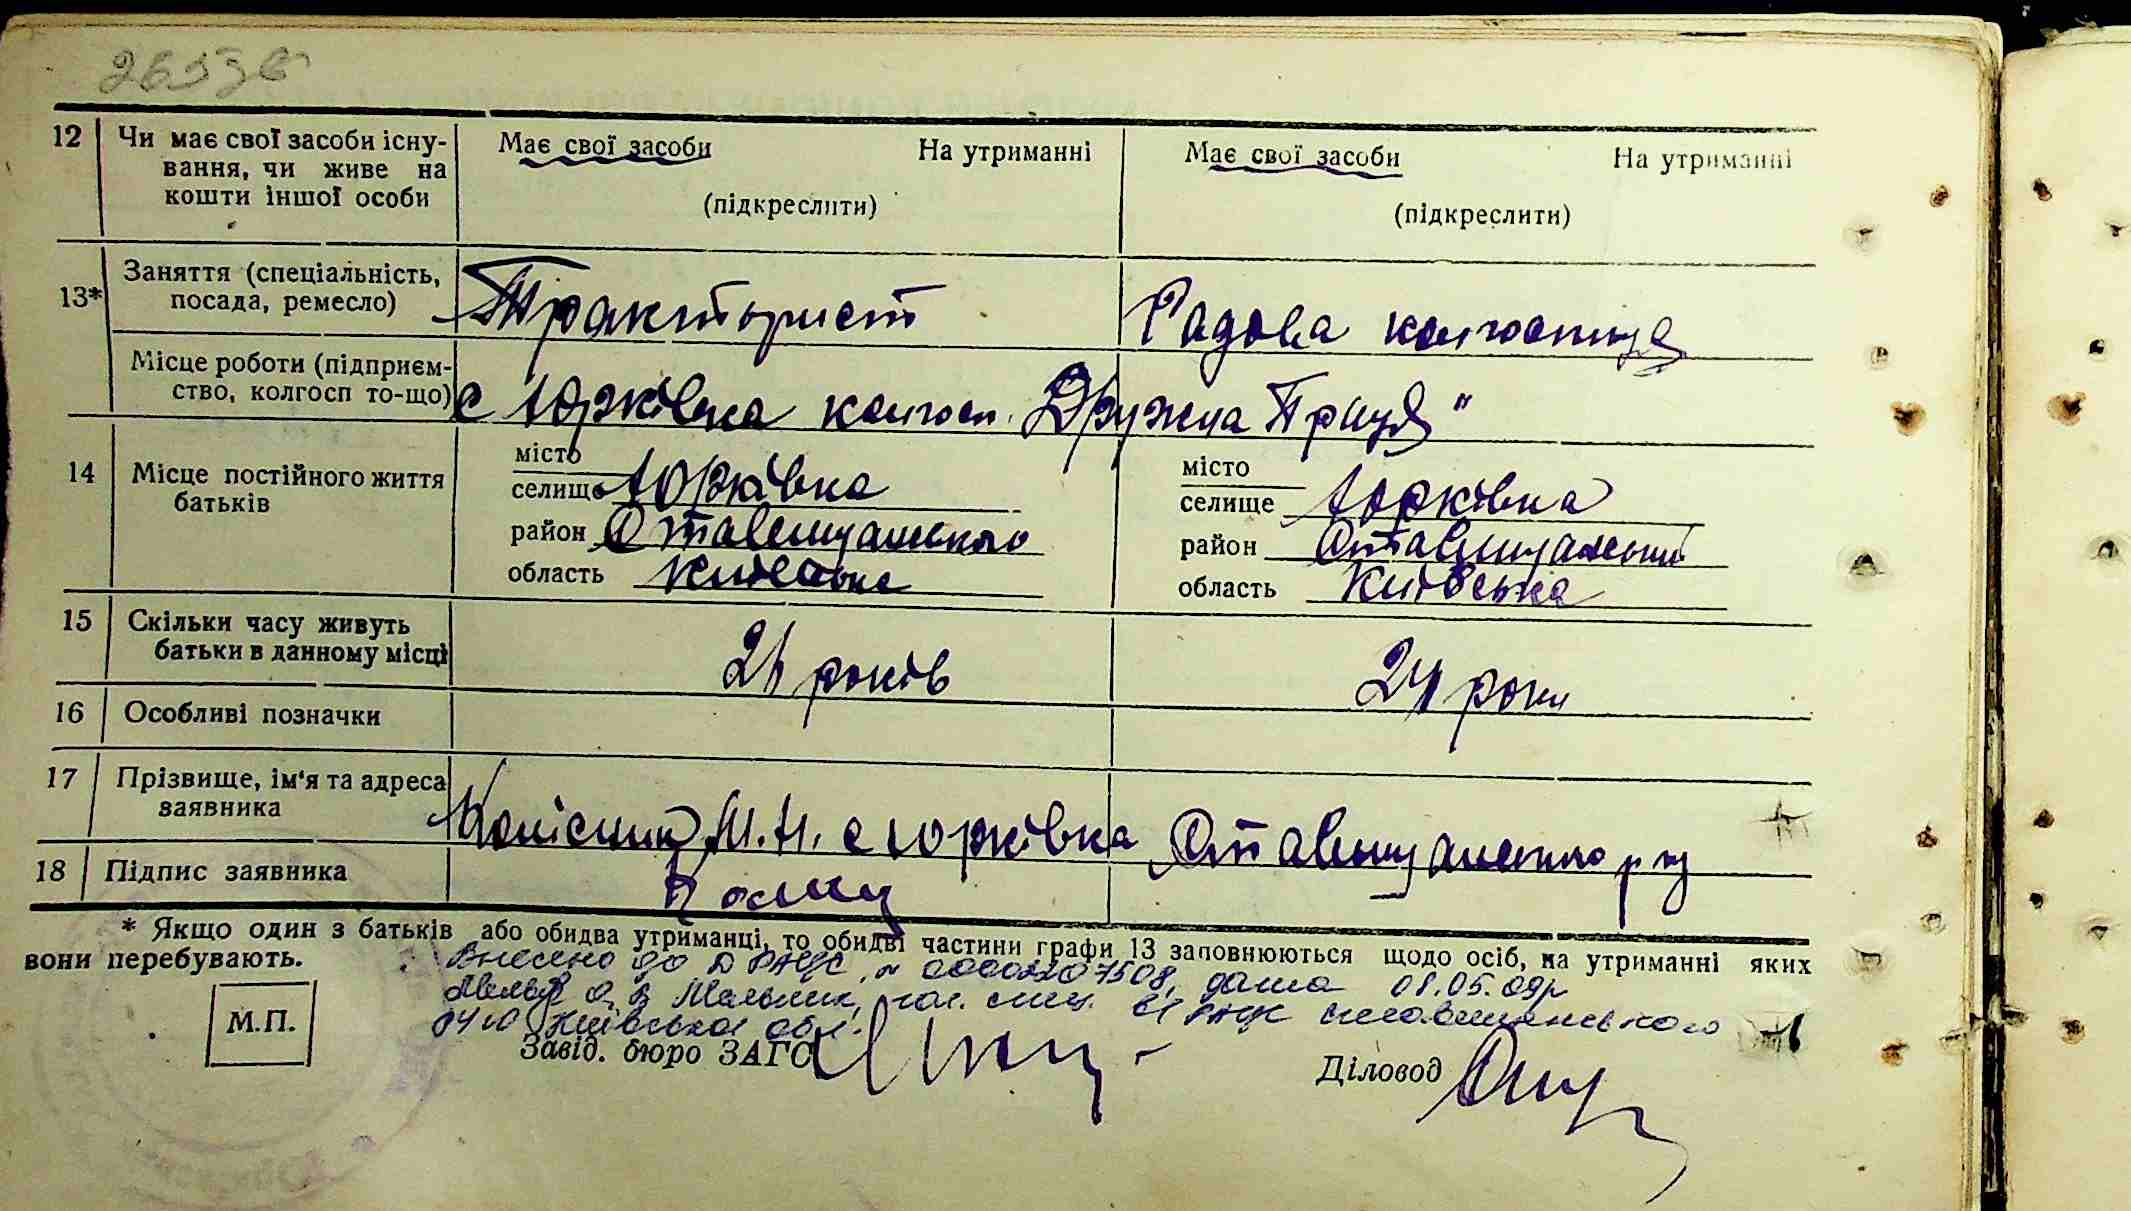 12 Чи має свої засоби існу- Має свої засоби На утриманні Має свої засоби На утриманні
вання, чи живе на
кошти іншої особи (підкреслити) (підкреслити)
13* Заняття (спеціальність,
посада, ремесло) Тракторист Радова колгоспниця
Місце роботи (підприєм-
ство, колгосп то-що) с Юрківка колгосп. Дружна Праця"
14 Місце постійного життя місто місто
батьків селище Юрківка селище Юрківка
район Ставищанського район Ставищанський
область Київська область Київська
15 Скільки часу живуть
батьки в данному місці років 24 роки
16 Особливі позначки
17 Прізвище, ім'я та адреса
заявника Колісник М.Н. с Юрківка Ставищанського р-ну
18 Підпис заявника
* Якщо один з батьків або обидва утриманці, то обидві частини графи 13 заповнюються щодо осіб, на утриманні яких
вони перебувають.
Внесено до ДРАЦС, дата 08.05.09р
гол. спец. В РАЦС Ставищанського
РУЮ Київської обл.
М.П.
Завід. бюро ЗАГС Діловод